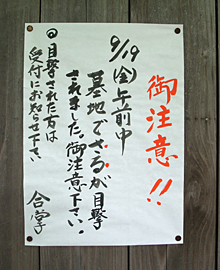 御注意!!
9/19(金)午前中
墓地でさるが目撃
されました。御注意下さい。
◎目撃された方は
受付にお知らせ下さい
合掌